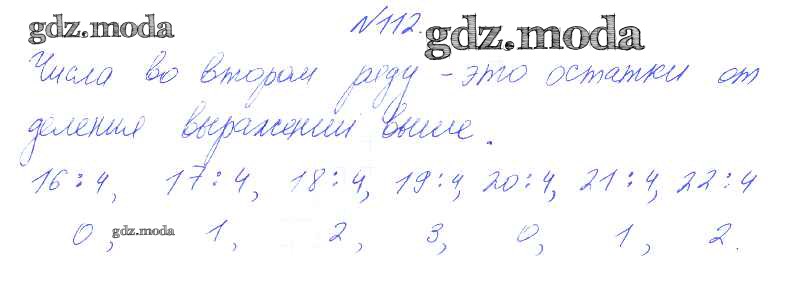 gdz.moda №112. gdz.moda
Числа во втором ряду - это остатки от
деления выражений выше.
16:4, 17:4, 18:4, 19:4, 20:4, 21:4, 22:4
0, gdz.moda 1, 2, 3, 0, 1, 2.